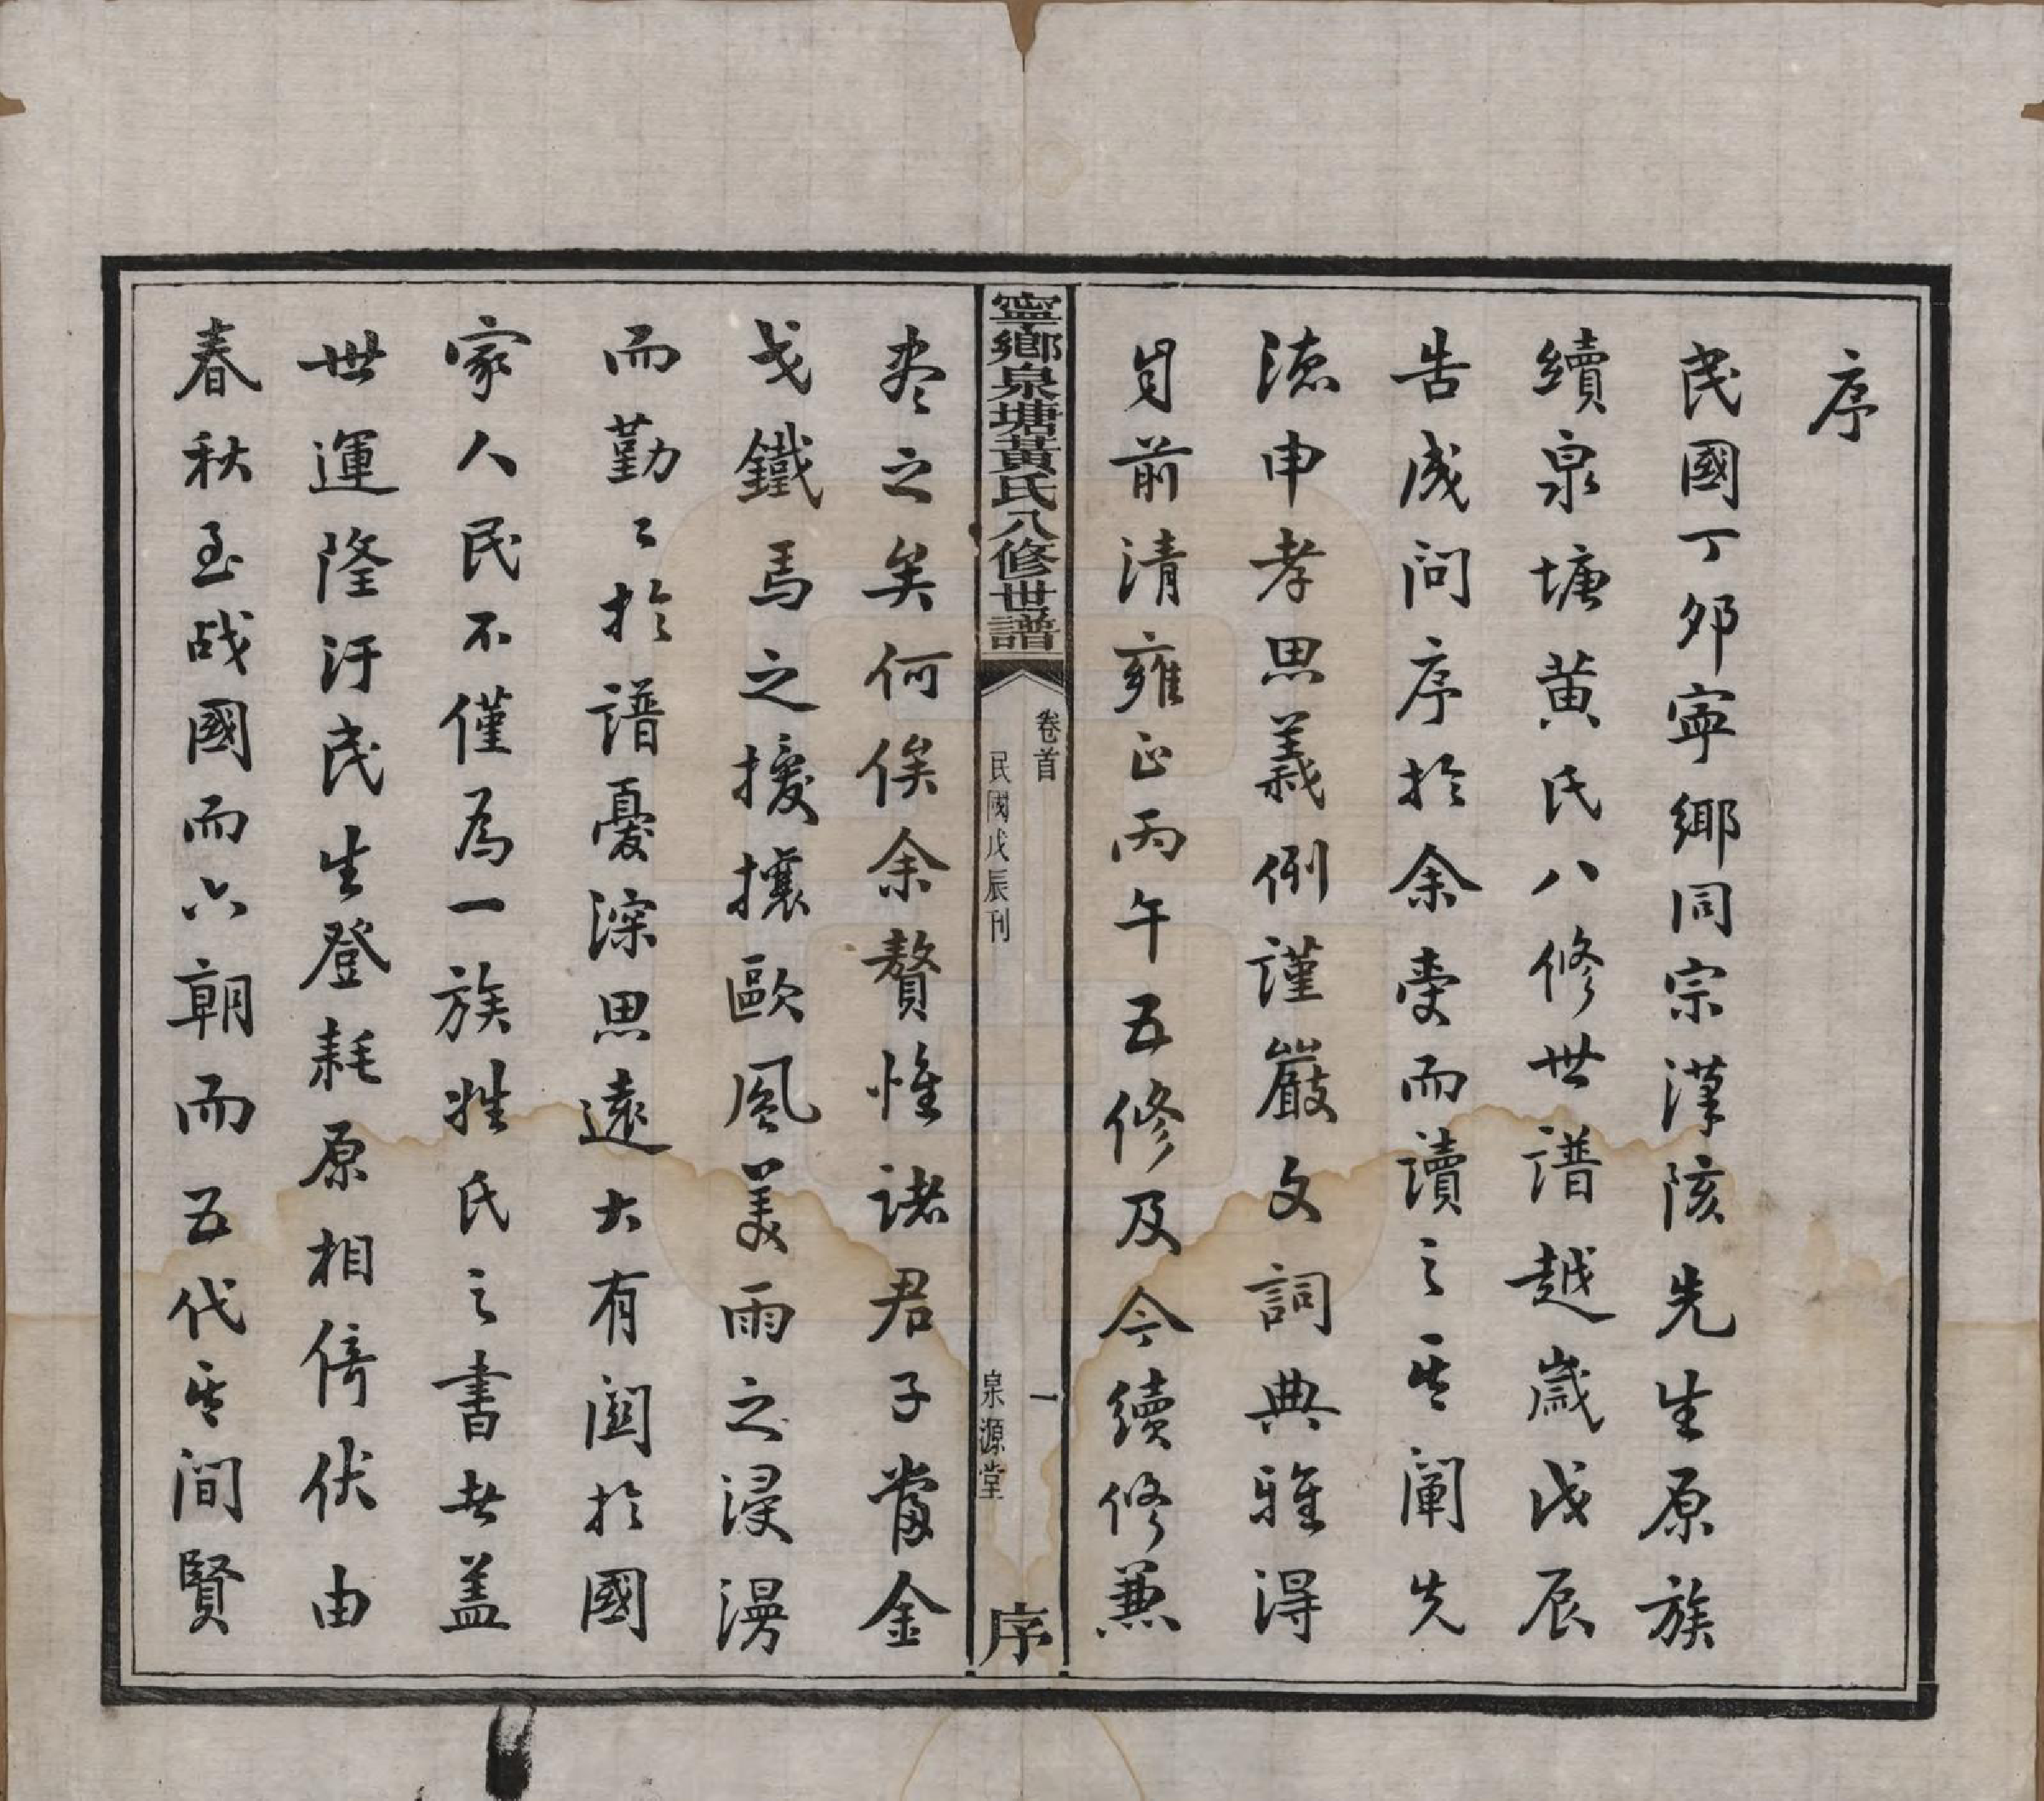 序
民國丁夘寧鄉同宗漢陔先生原族
續泉塘黄氏八修世譜越歲戊辰
告成问序於余受而讀之其闡先
德申孝思義例謹嚴文詞典雅得
自前清雍正丙午五修及今續修兼
寧鄉泉塘黃氏八修世譜
卷首
一
序
民國戊辰刊
泉源堂
盡之矣何俟余贅惟諸君子當金
戈鐵馬之擾攘歐风美雨之浸漫
而勤〻於譜憂深思遠大有闗於國
家人民不僅為一族姓氏之書者盖
世運隆汙民生登耗原相倚伏由
春秋至战國而六朝而五代其间賢